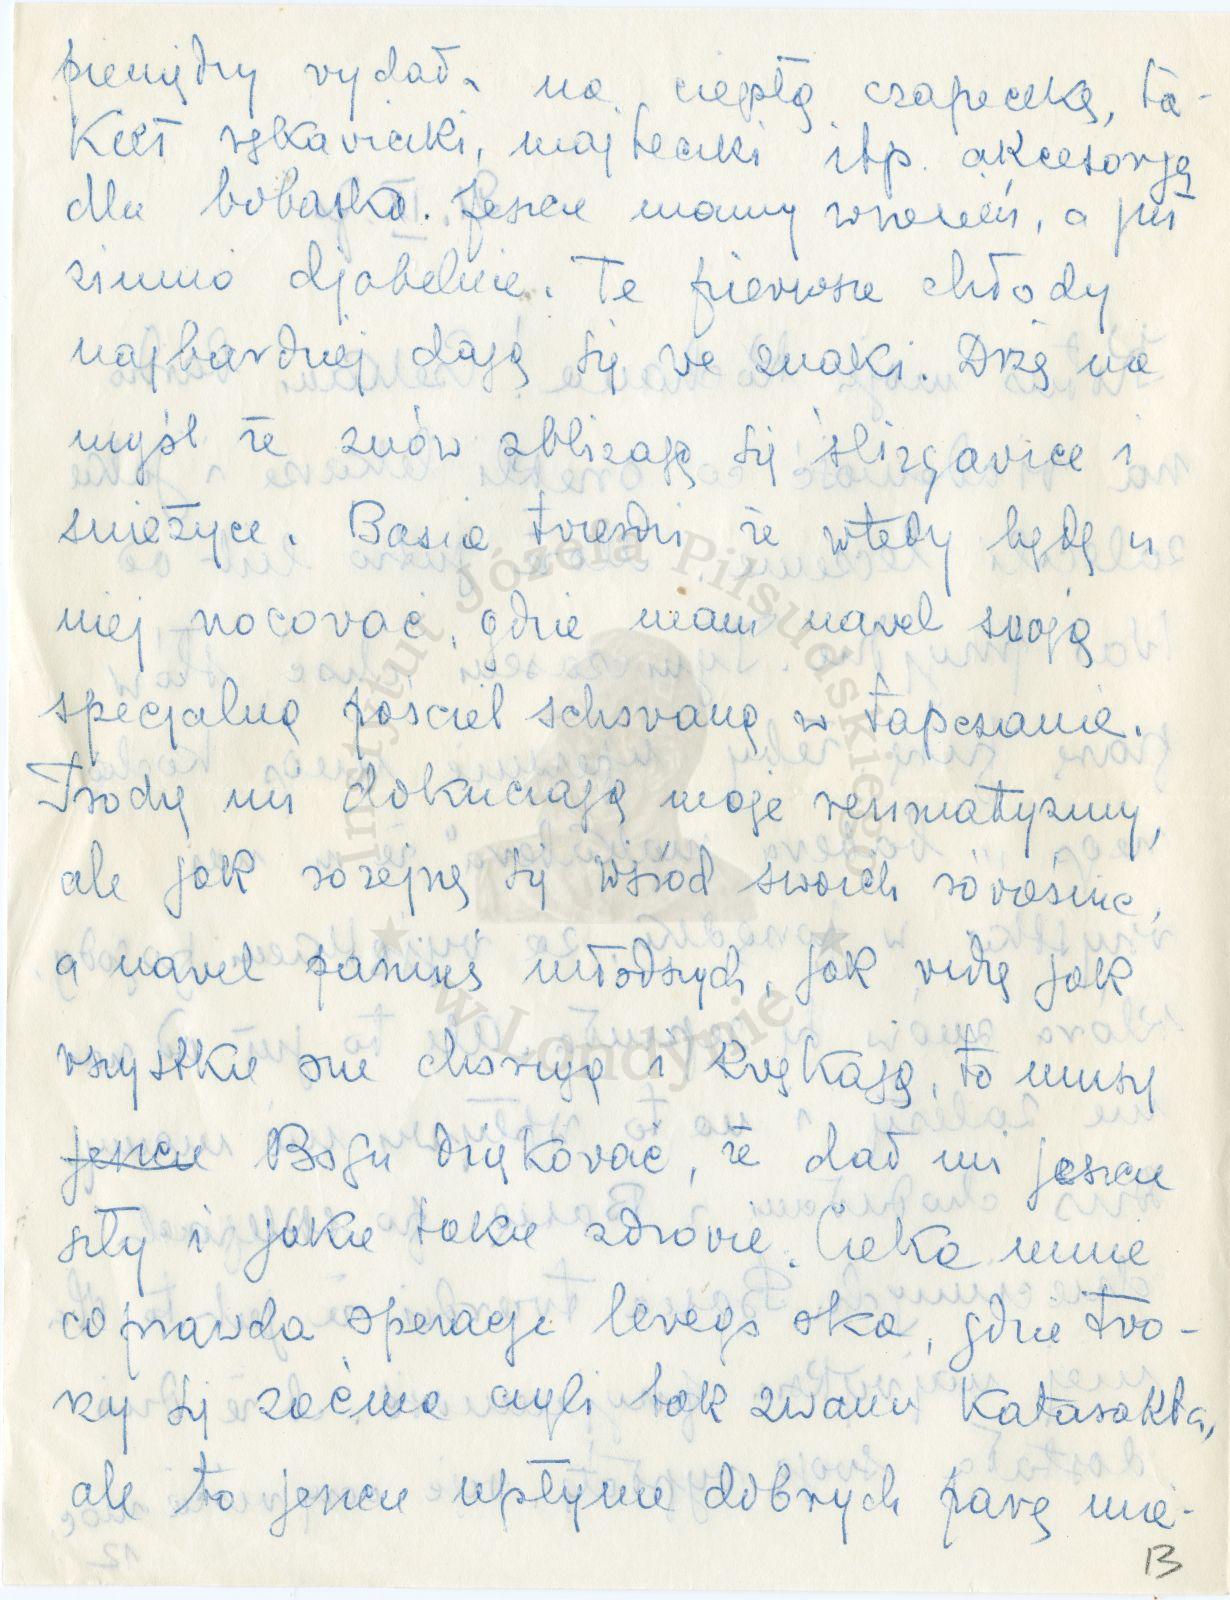 pieniędzy wydała na ciepłą czapeczkę, ta-
kież rękawiczki, majteczki itp. akcesorja
dla bobaska. Jeszcze mamy wrzesień, a już
zimno djabelnie. Te pierwsze chłody
najbardziej dają się we znaki. Drżę na
myśl że znów zbliżają się ślizgawice i
śnieżyce. Basia twierdzi że wtedy będę u
niej nocować, gdzie mam nawet swoją
specjalną pościel schowaną w tapczanie.
Trochę mi dokuczają moje reumatyzmy,
ale jak rozejrzę się wśród swoich rówieśnic,
a nawet paniuś młodszych, jak widzę jak
wszystkie one chorują i kwękają, to muszę
jeszcze Bogu dziękować, że dał mi jeszcze
siły i jakie takie zdrowie. Czeka mnie
coprawda operacja lewego oka, gdzie two-
rzy się zaćma czyli tak zwana katarakta,
ale to jeszcze upłynie dobrych parę mie-
13
Instytut Józefa Piłsudskiego
w Londynie